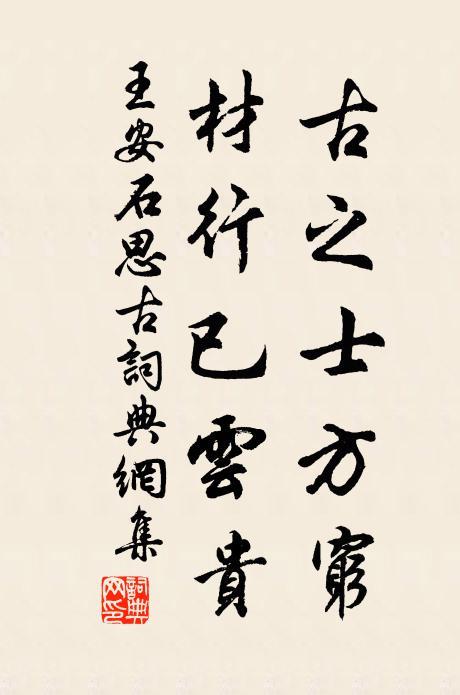 古之士方窮
材行已雲貴
王安石思古詞典網集
詞典
网印